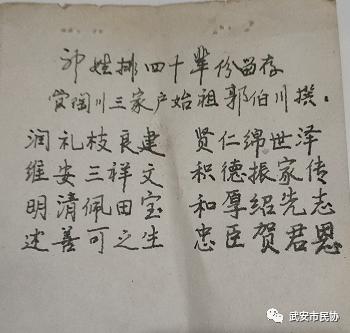 郭姓排四十辈份留存
管陶川三家户始祖郭伯川撰。
润礼枝良建 贤仁绵世泽
维安三祥文 积德振家传
明清佩田宝 和厚绍先志
述善可之生 忠臣贺君恩
武安市民协